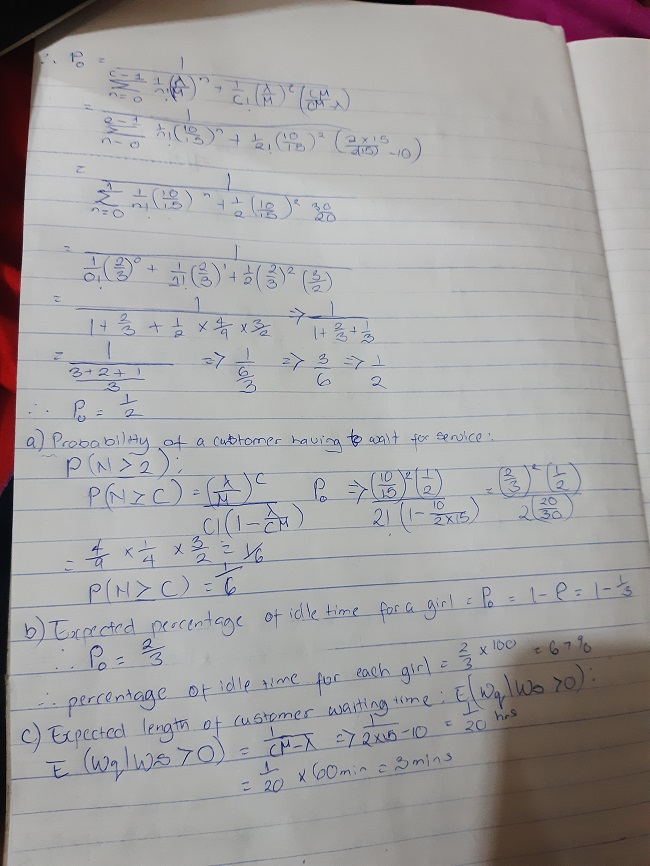 ∴ P₀ = 1 / (Σ_{n=0}^{c-1} 1/n! (λ/μ)ⁿ + 1/c! (λ/μ)^c (cμ/cμ-λ))
= 1 / (Σ_{n=0}^{2-1} 1/n! (10/15)ⁿ + 1/2! (10/15)² (2×15/2(15) -10))
= 1 / (Σ_{n=0}^{1} 1/n! (10/15)ⁿ + 1/2 (10/15)² 30/20)
= 1 / (1/0! (2/3)⁰ + 1/1! (2/3)¹ + 1/2 (2/3)² (3/2))
= 1 / (1 + 2/3 + 1/2 × 4/9 × 3/2) => 1 / (1 + 2/3 + 1/3)
= 1 / ((3+2+1)/3) => 1 / (6/3) => 3/6 => 1/2
∴ P₀ = 1/2
a) Probability of a customer having to wait for service:
P(N>2):
P(N≥C) = (λ/μ)^C P₀ / C!(1-λ/Cμ) => (10/15)² (1/2) / 2! (1-10/2×15) = (2/3)² (1/2) / 2(20/30)
= 4/9 × 1/4 × 3/2 = 1/6
P(N≥C) = 1/6
b) Expected percentage of idle time for a girl = P₀ = 1-ρ = 1-1/3
∴ P₀ = 2/3
∴ percentage of idle time for each girl = 2/3 × 100 = 67%
c) Expected length of customer waiting time: E(Wq|Ws>0):
E (Wq|Ws>0) = 1/Cμ-λ => 1/2×15-10 = 1/20 hrs
= 1/20 × 60min = 3mins